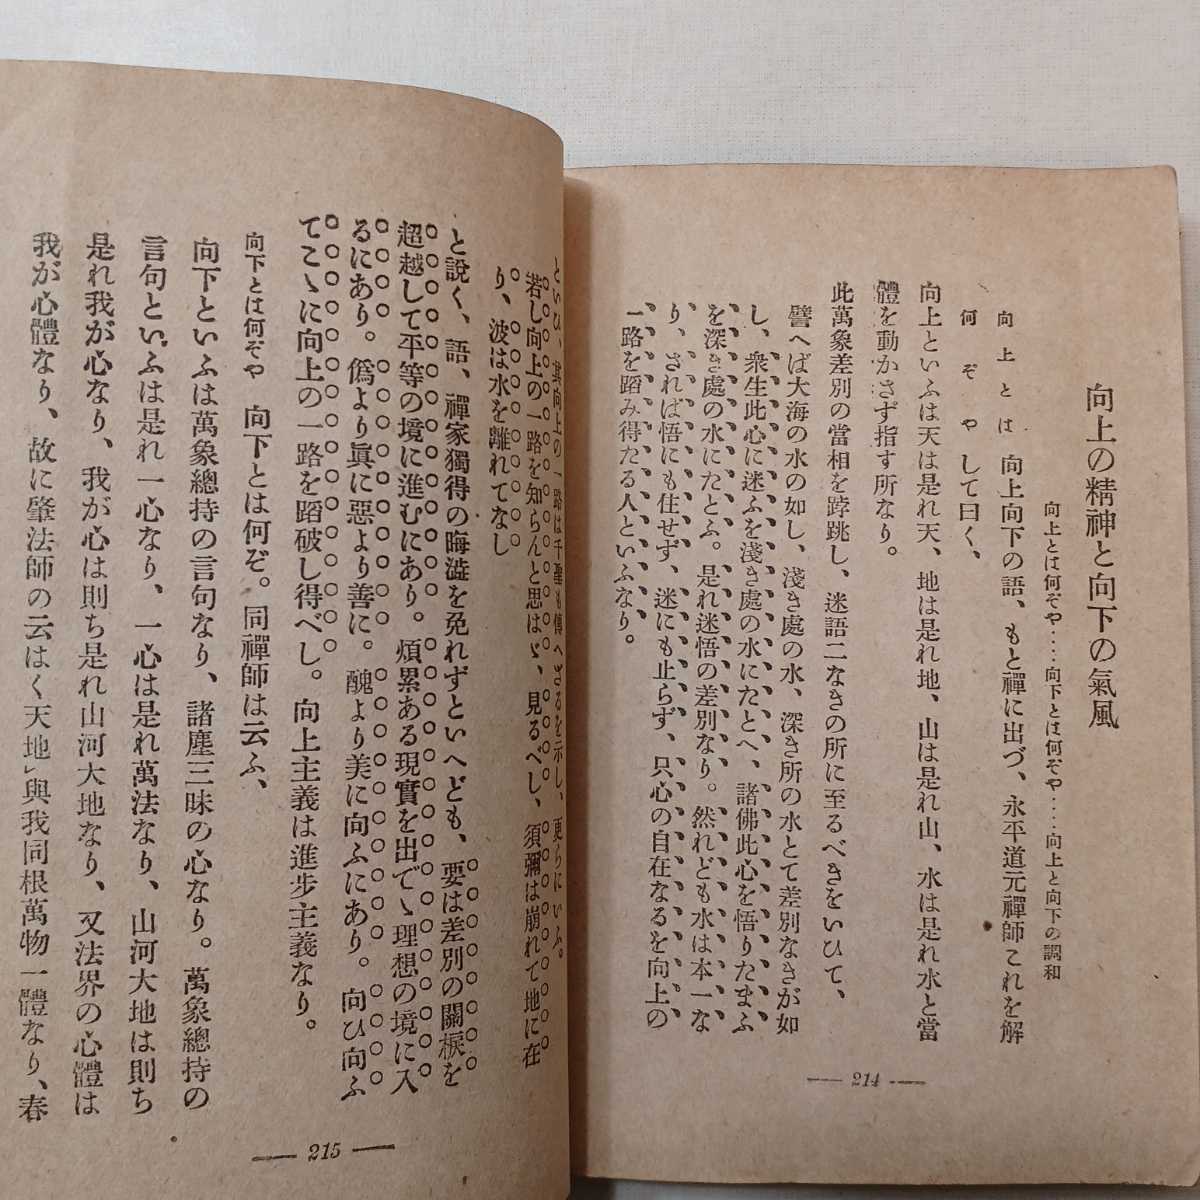 向上の精神と向下の氣風
向上とは何ぞや‥‥向下とは何ぞや‥‥向上と向下の調和
向上とは何ぞや
向上向下の語、もと禪に出づ、永平道元禪師これを解
して曰く、
向上といふは天は是れ天、地は是れ地、山は是れ山、水は是れ水と當
體を動かさず指す所なり。
此萬象差別の當相を踍跳し、迷語二なきの所に至るべきをいひて、
譬へば大海の水の如し、淺き處の水、深き所の水とて差別なきが如
し、衆生此心に迷ふを淺き處の水にたとへ、諸佛此心を悟りたまふ
を深き處の水にたとふ。是れ迷悟の差別なり。然れども水は本一な
り、されば悟にも住せず、迷にも止らず、只心の自在なるを向上の
一路を踏み得たる人といふなり。
— 214 —
といひ、其向上の一路は千聖も傳へざるを示し、更らにいふ。
若し向上の一路を知らんと思はゞ、見るべし、須彌は崩れて地に在
り、波は水を離れてなし
と說く、語、禪家獨得の晦澁を免れずといへども、要は差別の關棙を
超越して平等の境に進むにあり。煩累ある現實を出でゝ理想の境に入
るにあり。僞より眞に惡より善に。醜より美に向ふにあり。向ひ向ふ
てこゝに向上の一路を踏破し得べし。向上主義は進步主義なり。
向下とは何ぞや
向下とは何ぞ。同禪師は云ふ、
向下といふは萬象總持の言句なり、諸塵三昧の心なり。萬象總持の
言句といふは是れ一心なり、一心は是れ萬法なり、山河大地は則ち
是れ我が心なり、我が心は則ち是れ山河大地なり、又法界の心體は
我が心體なり、故に肇法師の云はく天地ト與我同根萬物一體なり、春
— 215 —